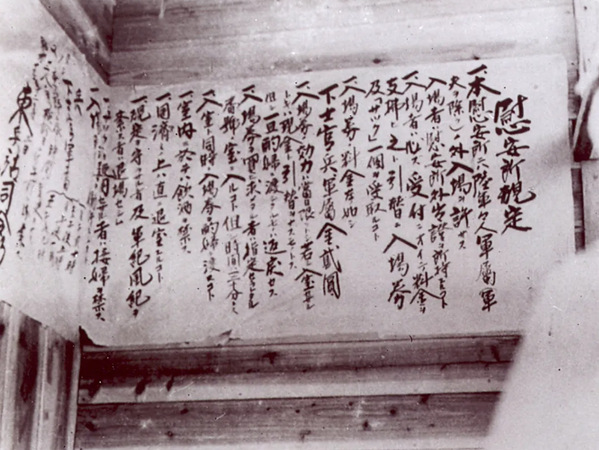 慰安所規定
一、本慰安所ニハ陸軍々人軍属(軍
夫ヲ除ク)ノ外入場ヲ許サス
一、入場者ハ慰安所外出證ヲ所持スルコト
一、入場者ハ必ス受付ニオイテ料金ヲ
支拂ヒ之ト引替ニ入場券
及「サック」一個ヲ受取ルコト
一、入場券ノ料金左ノ如シ
下士官、兵、軍属金貳圓
一、入場券ノ効力ハ當日限リトシ若シ入室セサル
トキハ現金ト引替ヲナスモノトス
但シ一旦酌婦ニ渡シタルモノハ返戻セス
一、入場券ヲ買求メタル者ハ指定セラレタル
番號ノ室ニ入ルコト但シ時間ハ三十分トス
一、入室ト同時ニ入場券ヲ酌婦ニ渡スコト
一、室内ニ於テハ飲酒ヲ禁ス
一、用濟ノ上ハ直ニ退室スルコト
一、規定ヲ守ラサル者及軍紀風紀ヲ
紊ス者ハ退場セシム
一、サックヲ使用セサル者ハ接婦ヲ禁ス
一、入場
兵
東兵站司令部